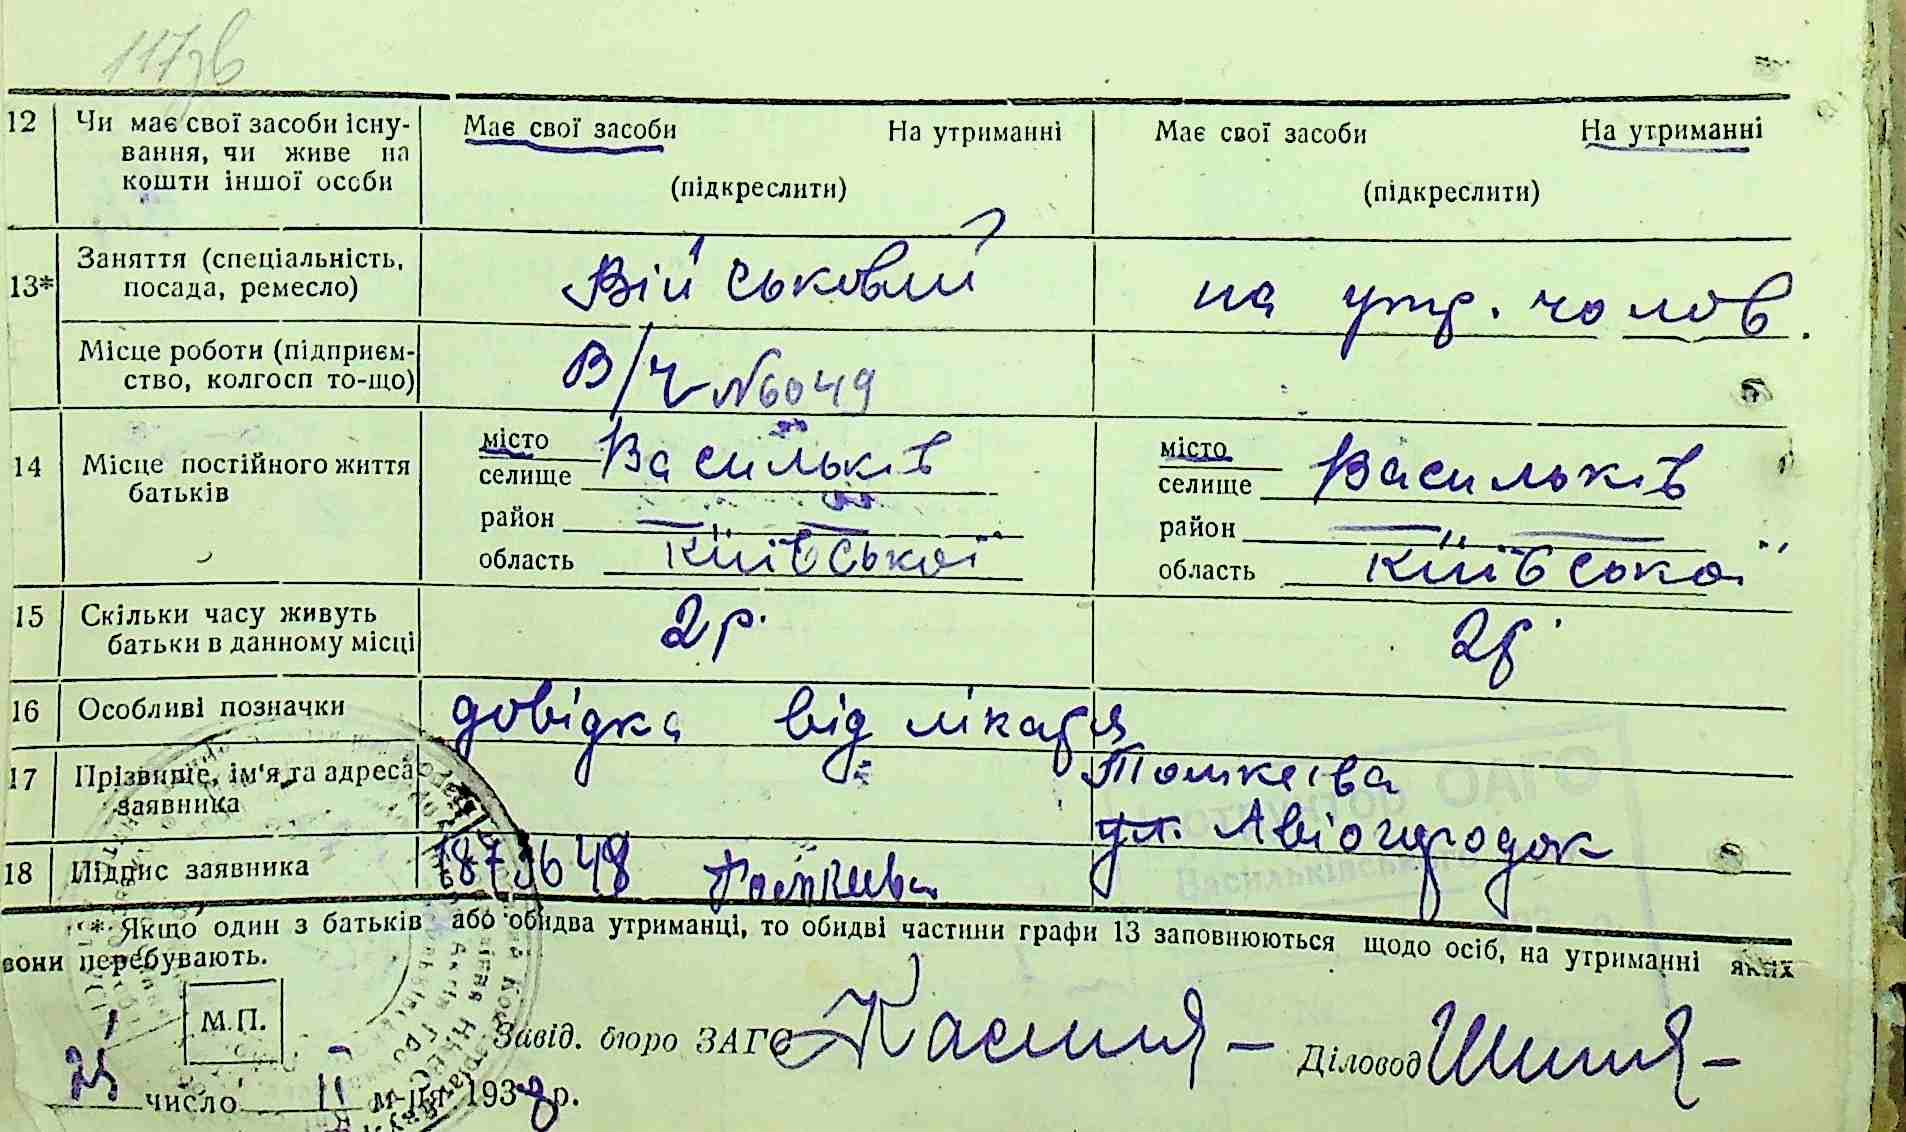 117зв
12 Чи має свої засоби існу- Має свої засоби На утриманні Має свої засоби На утриманні
вання, чи живе на
кошти іншої особи (підкреслити) (підкреслити)
13* Заняття (спеціальність, Військовий на утр. чолов.
посада, ремесло)
Місце роботи (підприєм- В/ч №6049
ство, колгосп то-що)
14 Місце постійного життя місто Васильків місто Васильків
батьків селище селище
район — — район — —
область Київської область Київської
15 Скільки часу живуть 2 р. 2 р.
батьки в данному місці
16 Особливі позначки довідка від лікаря
17 Прізвище, ім'я та адреса
заявника ул. Авіогородок
18 Підпис заявника
* Якщо один з батьків або обидва утриманці, то обидві частини графи 13 заповнюються щодо осіб, на утриманні яких
вони перебувають.
М.П.
Завід. бюро ЗАГС Діловод
25 число II м-ця 1938 р.